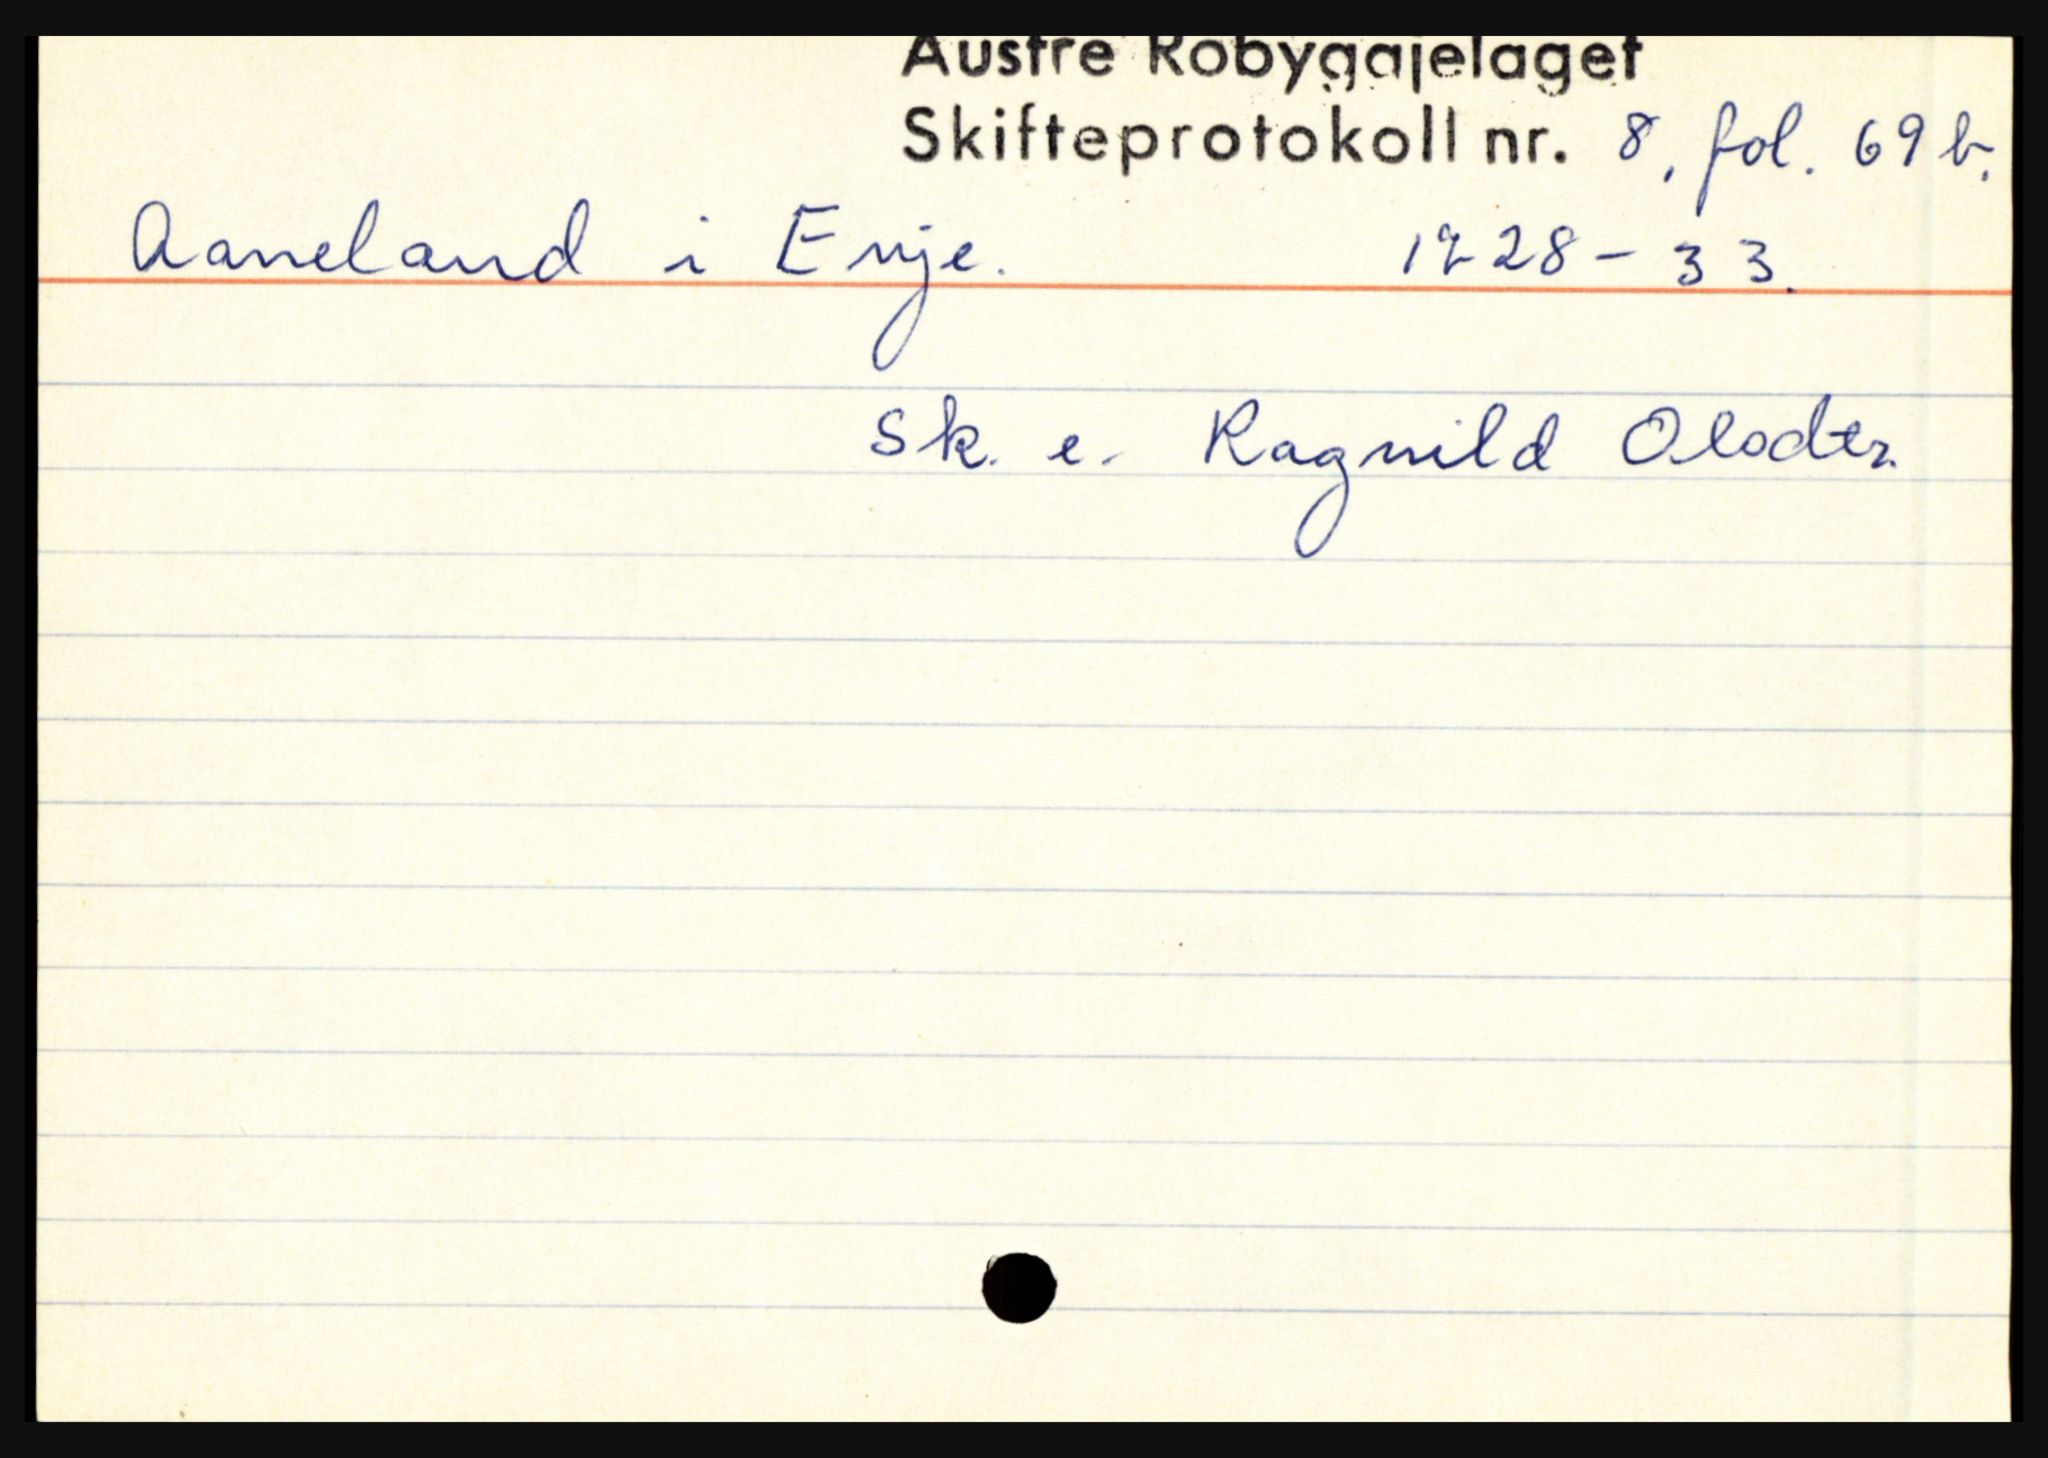 Austre Robyggjelaget
Skifteprotokoll nr. 8, fol. 69 b.
Aaneland i Evje. 1728-33.
Sk. e. Ragnild Olsdtr.